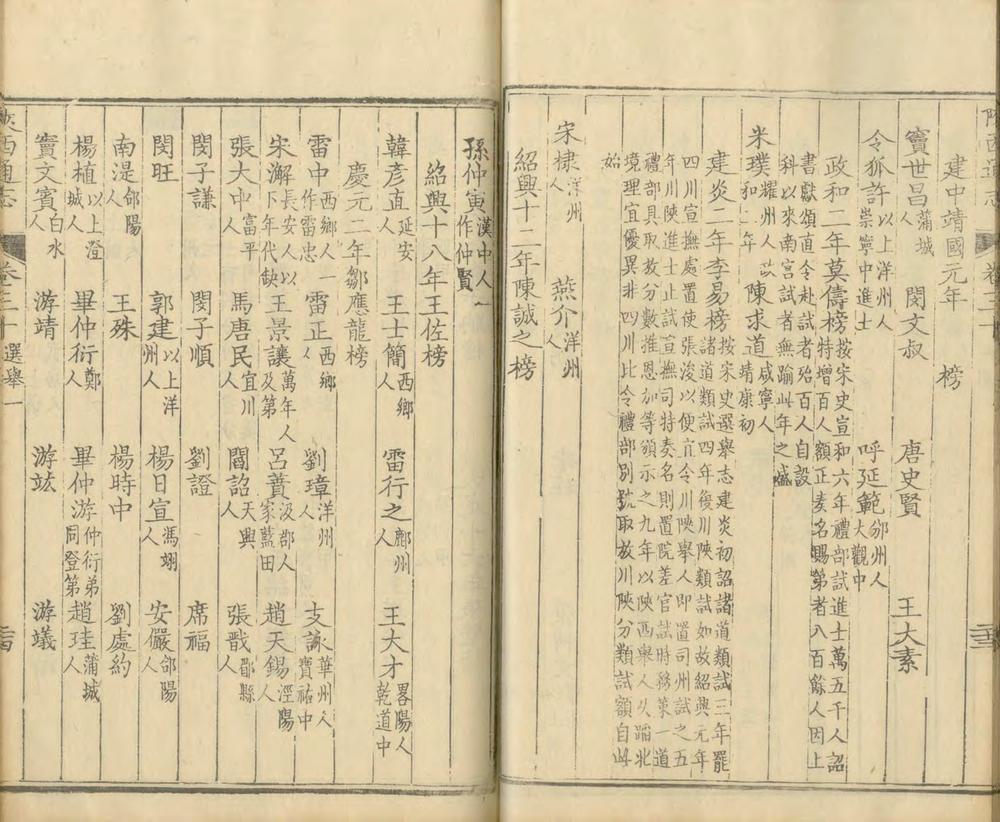 陝西通志
卷三十
建中靖國元年 榜
竇世昌 蒲城人 閔文叔 唐史賢 王大素
令狐許 以上洋州人崇寧中進士 呼延範 邠州人大觀中
政和二年莫儔榜 按宋史宣和六年禮部試進士萬五千人詔特增百人額正奏名賜第者八百餘人因上
書獻頌直令赴試者殆百人自設科以來南宮試者無踰此年之盛
米璞 耀州人政和二年 陳求道 咸寧人靖康初
建炎二年李易榜 按宋史選舉志建炎初詔諸道類試三年罷諸道類試四年復川陝類試如故紹興元年
四川宣撫處置使張浚以便宜令川陝舉人即置司州試之五年川陝進士止試宣撫司特奏名則置院差官試時務策一道
禮部具取放分數推恩加等頒示之九年以陝西舉人久蹈北境理宜優異非四川比令禮部別號取放川陝分類試額自此
始
宋棣 洋州人 燕介 洋州人
紹興十二年陳誠之榜
孫仲寅 漢中人一作仲賢
紹興十八年王佐榜
韓彥直 延安人 王士簡 西鄉人 雷行之 鄜州人 王大才 畧陽人乾道中
慶元二年鄒應龍榜
雷中 西鄉人一作雷忠 雷正 西鄉人 劉璋 洋州人 支詠 華州人寶祐中
宋澥 長安人以下年代缺 王景讓 萬年人及第 呂蕡 汲郡人家藍田 趙天錫 涇陽人
張大中 富平人 馬唐民 宜川人 閻詔 天興人 張戩 郿縣人
閔子謙 閔子順 劉證 席福
閔旺 郭建 以上洋州人 楊日宣 馮翊人 安儼 郃陽人
南湜 郃陽人 王殊 楊時中 劉處約
楊植 以上澄城人 畢仲衍 鄭人 畢仲游 仲衍弟同登第 趙珪 蒲城人
竇文賓 白水人 游靖 游竑 游蟻
陝西通志
卷三十 選舉一